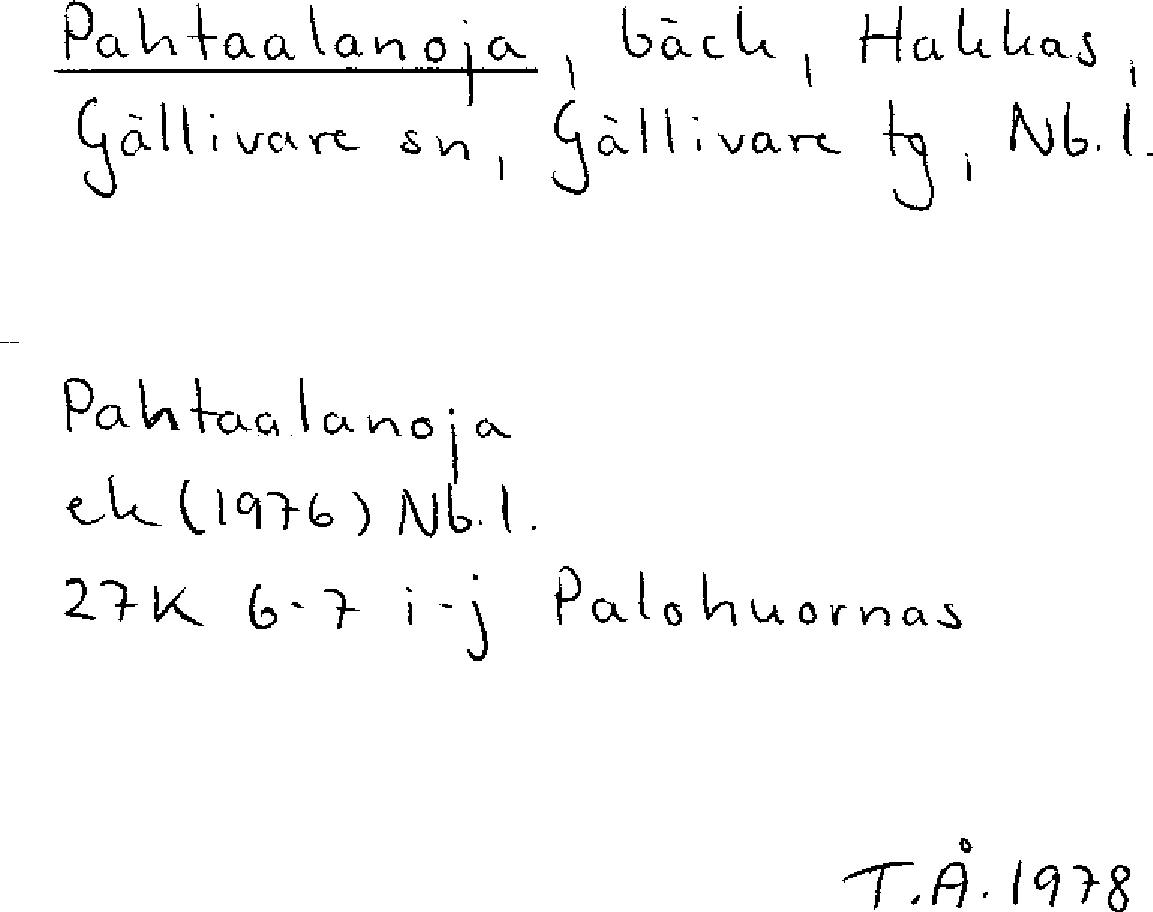 Pahtaalanoja, bäck, Hakkas,
Gällivare sn, Gällivare tg, Nb.l.
Pahtaalanoja
ek (1976) Nb.l.
27K 6-7 i-j Palohuornas
T.Å. 1978